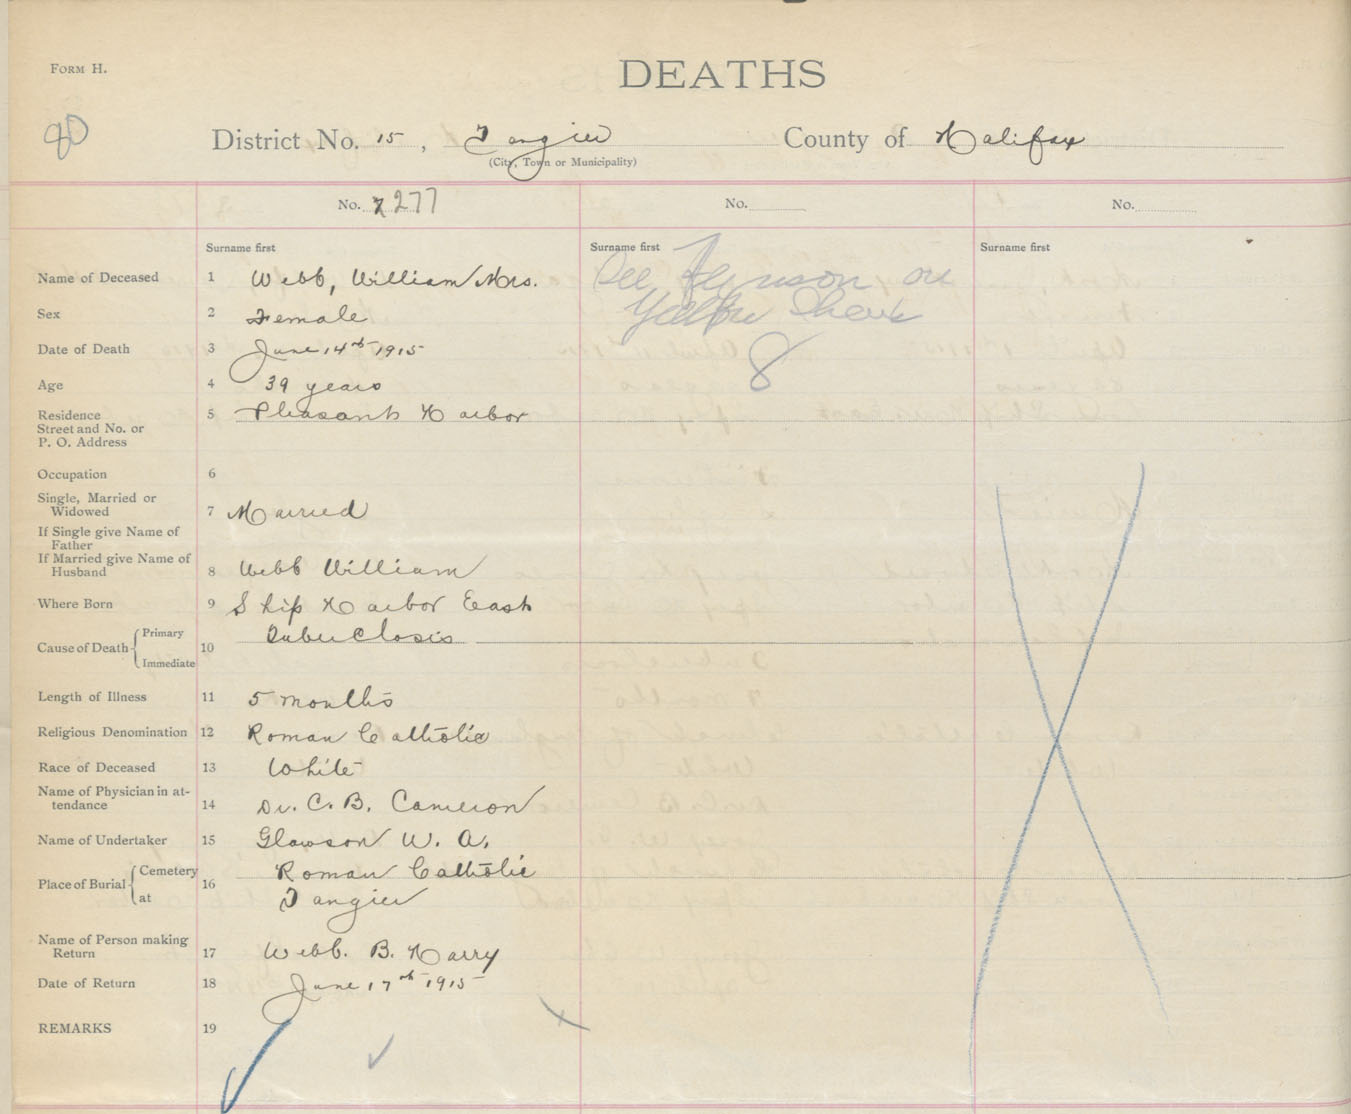 FORM H.
DEATHS
80
District No. 15, Tangier County of Halifax
(City, Town or Municipality)
No. 7 277 No. No.
Surname first Surname first Surname first
Name of Deceased 1 Webb, William Mrs.
See Ferguson on
Yellow Sheet
8
Sex 2 Female
Date of Death 3 June 14th 1915
Age 4 39 years
Residence 5 Pleasant Harbor
Street and No. or
P. O. Address
Occupation 6
Single, Married or
Widowed 7 Married
If Single give Name of
Father
If Married give Name of
Husband 8 Webb William
Where Born 9 Ship Harbor East
Cause of Death Primary Tuberclosis
10
Immediate
Length of Illness 11 5 months
Religious Denomination 12 Roman Catholic
Race of Deceased 13 White
Name of Physician in at-
tendance 14 Dr. C. B. Cameron
Name of Undertaker 15 Glawson W. A.
Place of Burial Cemetery Roman Catholic
16
at Tangier
Name of Person making
Return 17 Webb. B. Harry
Date of Return 18 June 17th 1915
REMARKS 19